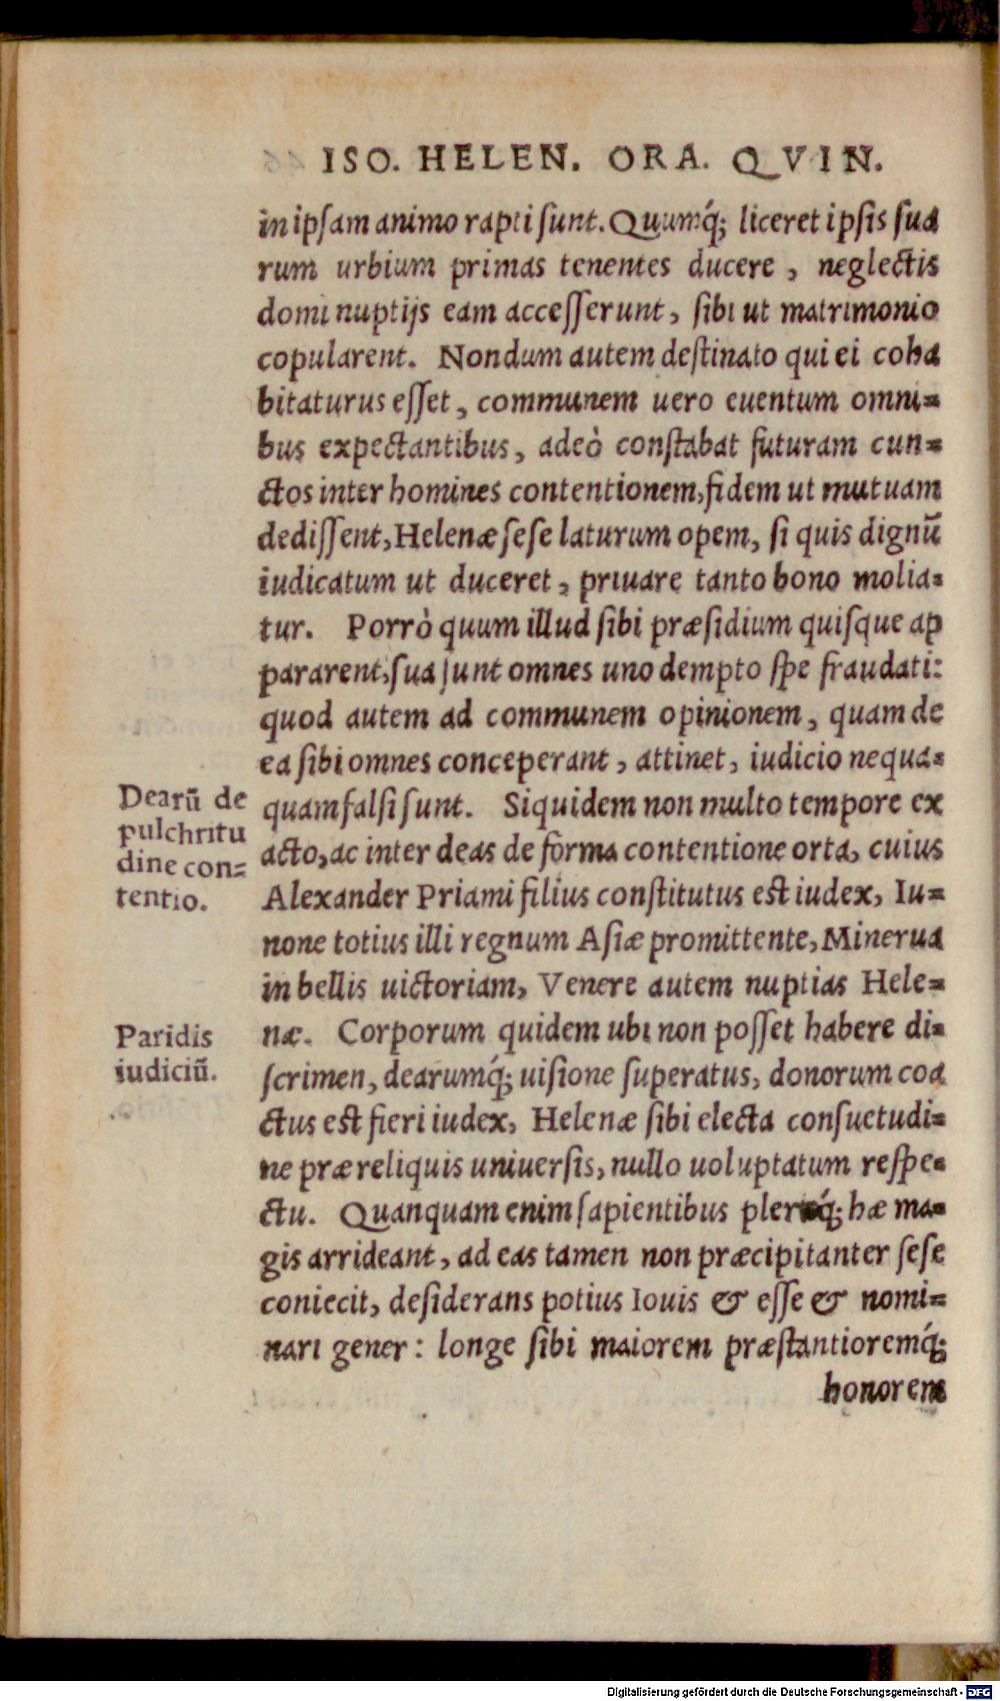 ISO. HELEN. ORA. QVIN.
in ipſam animo rapti ſunt. Quumq́; liceret ipſis ſua
rum urbium primas tenentes ducere, neglectis
domi nuptijs eam acceſſerunt, ſibi ut matrimonio
copularent. Nondum autem deſtinato qui ei coha
bitaturus eſſet, communem uero euentum omni=
bus expectantibus, adeò conſtabat futuram cun=
ctos inter homines contentionem, fidem ut mutuam
dediſſent, Helenæ ſeſe laturum opem, ſi quis dignũ
iudicatum ut duceret, priuare tanto bono molia=
tur. Porrò quum illud ſibi præſidium quiſque ap
pararent, ſua ſunt omnes uno dempto ſpe fraudati:
quod autem ad communem opinionem, quam de
ea ſibi omnes conceperant, attinet, iudicio nequa=
quam falſi ſunt. Siquidem non multo tempore ex
acto, ac inter deas de forma contentione orta, cuius
Alexander Priami filius conſtitutus eſt iudex, Iu=
none totius illi regnum Aſiæ promittente, Minerua
in bellis uictoriam, Venere autem nuptias Hele=
næ. Corporum quidem ubi non poſſet habere di=
ſcrimen, dearumq́; uiſione ſuperatus, donorum coa
ctus eſt fieri iudex, Helenæ ſibi electa conſuetudi=
ne præ reliquis uniuerſis, nullo uoluptatum reſpe=
ctu. Quanquam enim ſapientibus pleriſq́; hæ ma=
gis arrideant, ad eas tamen non præcipitanter ſeſe
coniecit, deſiderans potius Iouis & eſſe & nomi=
nari gener: longe ſibi maiorem præſtantioremq́;
honorem
Dearũ de
pulchritu
dine con=
tentio.
Paridis
iudiciũ.
Digitalisierung gefördert durch die Deutsche Forschungsgemeinschaft - DFG